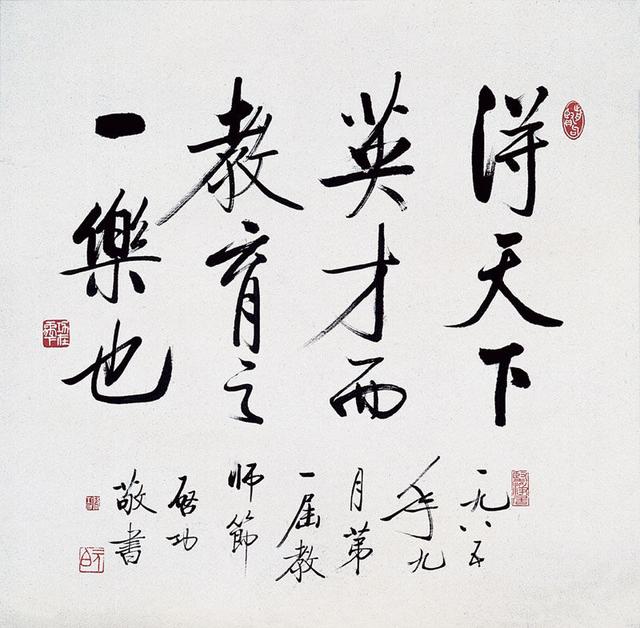 得天下
英才而
教育之
一樂也
一九八五
年九
月第
一屆教
师節
啓功
敬書